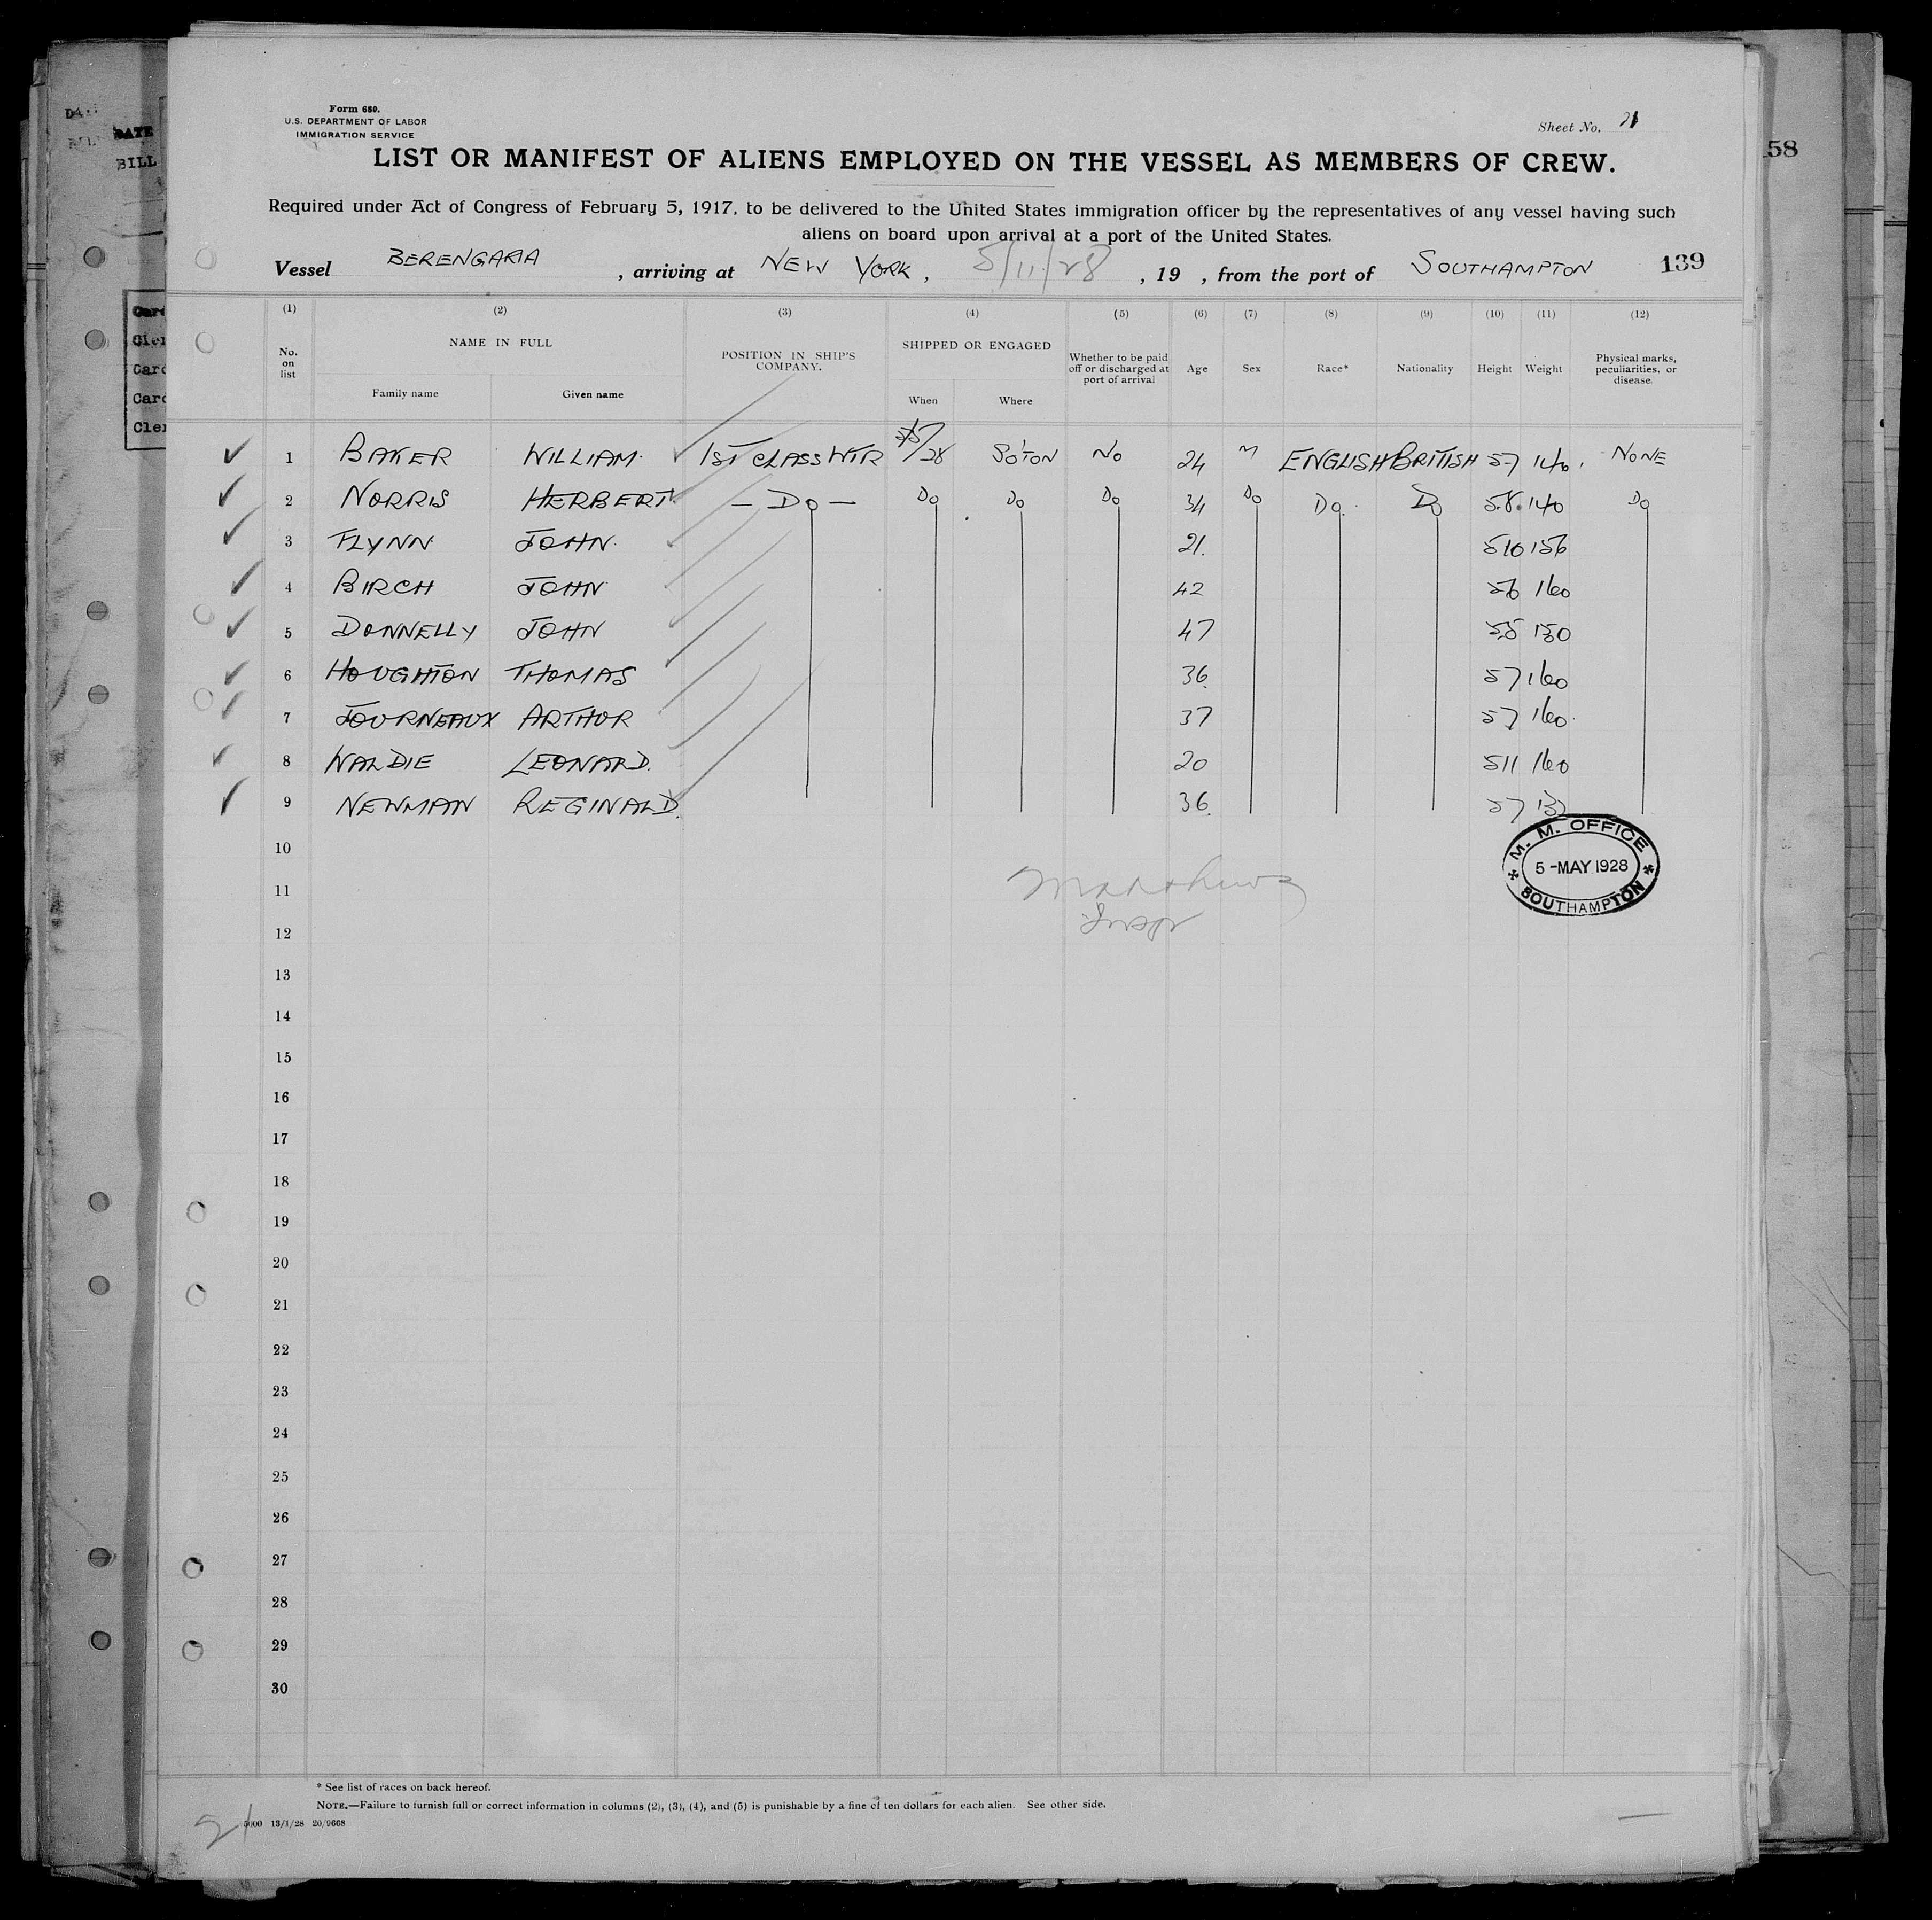 Form 680.
U.S. DEPARTMENT OF LABOR
IMMIGRATION SERVICE
Sheet No. 21
LIST OR MANIFEST OF ALIENS EMPLOYED ON THE VESSEL AS MEMBERS OF CREW.
Required under Act of Congress of February 5, 1917, to be delivered to the United States immigration officer by the representatives of any vessel having such
aliens on board upon arrival at a port of the United States.
Vessel BERENGARIA, arriving at NEW YORK, 5/11/28, 19 , from the port of SOUTHAMPTON 139
58
DATE
BILL
(1) (2) (3) (4) (5) (6) (7) (8) (9) (10) (11) (12)
No. on list NAME IN FULL POSITION IN SHIP'S COMPANY. SHIPPED OR ENGAGED Whether to be paid off or discharged at port of arrival Age Sex Race* Nationality Height Weight Physical marks, peculiarities, or disease.
Family name Given name When Where
1 BAKER WILLIAM. 1ST CLASS WTR 5/5/28 SO'TON NO 24 M ENGLISH BRITISH 5-7 140. NONE
2 NORRIS HERBERT — DO — DO DO DO 34 DO DO. DO 5.8. 140 DO
3 FLYNN JOHN. 21. 510 156
4 BIRCH JOHN 42 56 160
5 DONNELLY JOHN 47 55 150
6 HOUGHTON THOMAS 36 57 160
7 JOURNEAUX ARTHUR 37 57 160.
8 WALDIE LEONARD. 20 511 160
9 NEWMAN REGINALD. 36 57
10
M. M. OFFICE
5-MAY 1928
SOUTHAMPTON
11 Matthews
12 Insp
13
14
15
16
17
18
19
20
21
22
23
24
25
26
27
28
29
30
* See list of races on back hereof.
NOTE.—Failure to furnish full or correct information in columns (2), (3), (4), and (5) is punishable by a fine of ten dollars for each alien. See other side.
21 5000 13/1/28 20/9668